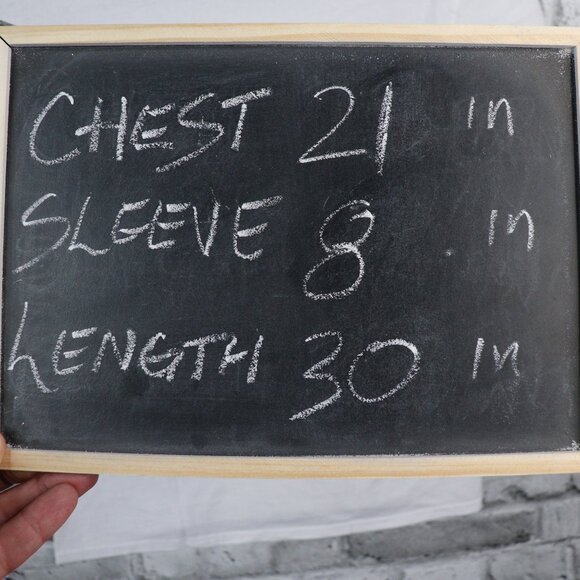 CHEST 21 in
SLEEVE 8 in
LENGTH 30 in